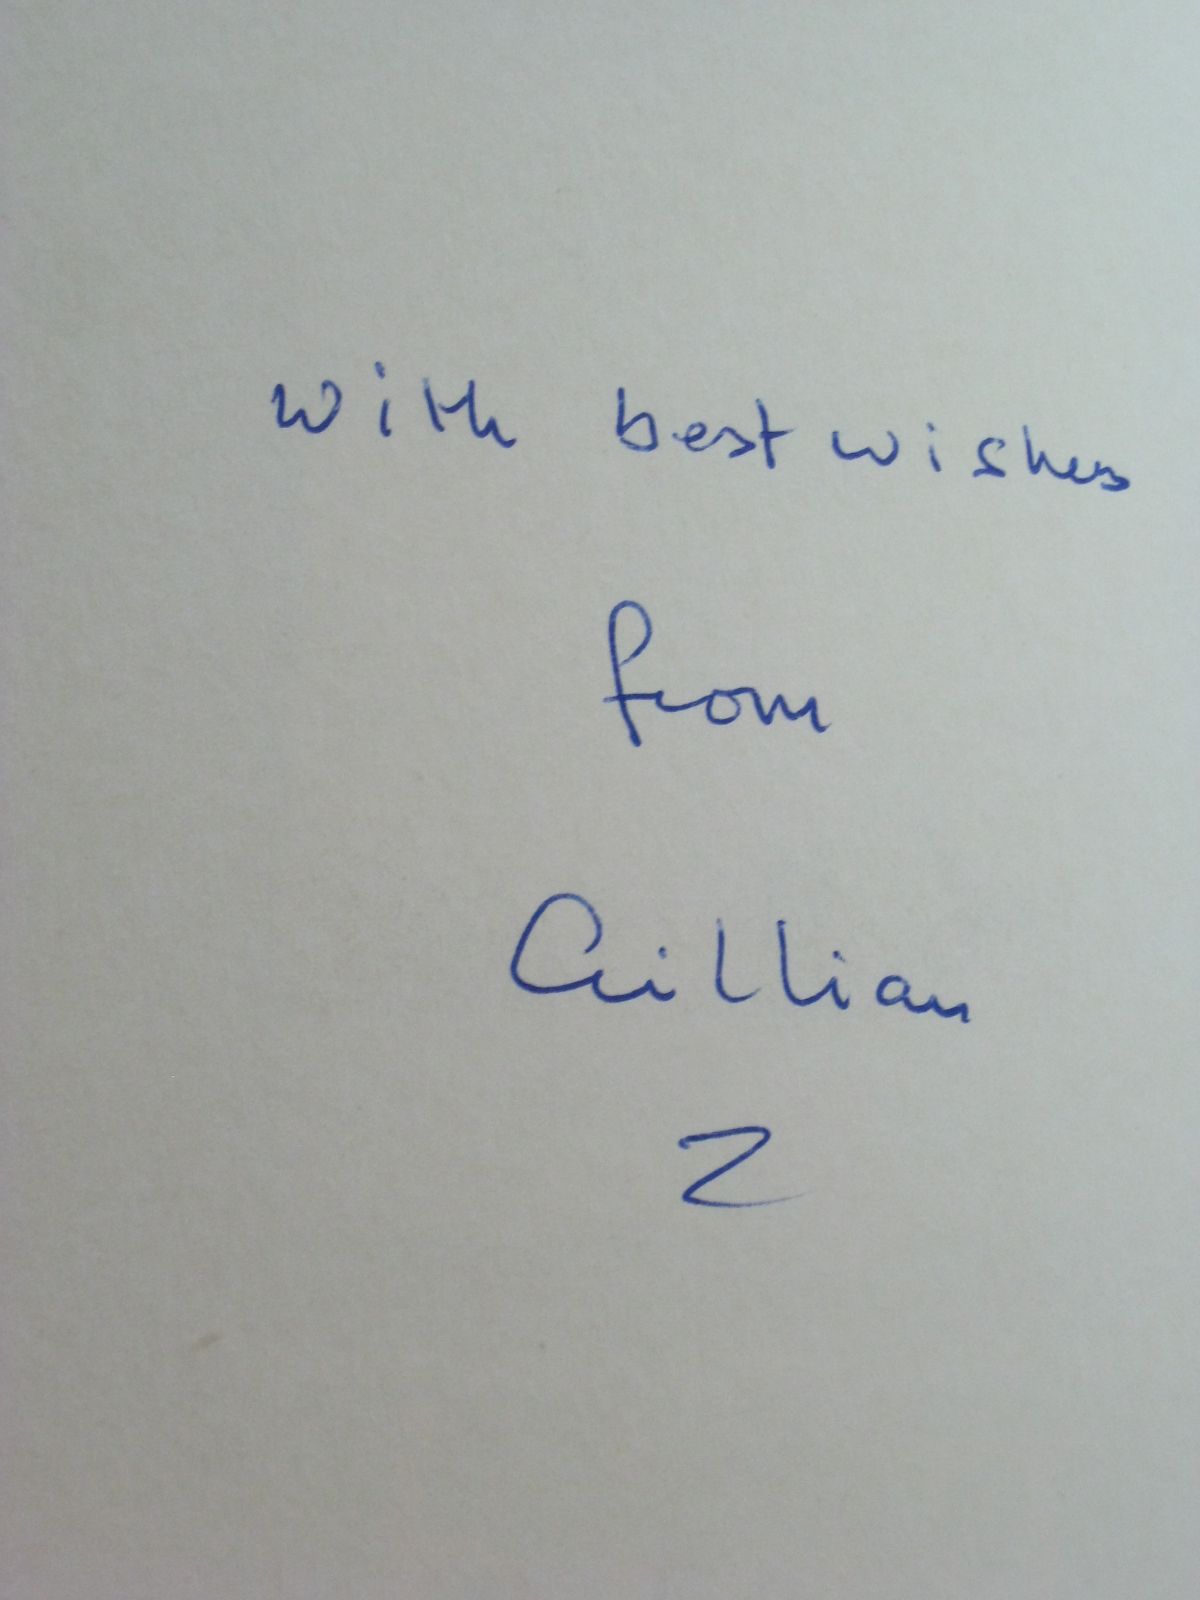 with best wishes
from
Gillian
Z